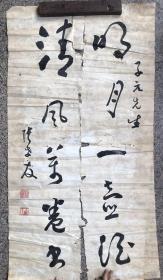 子元先生
明月一壶酒
清风万卷书